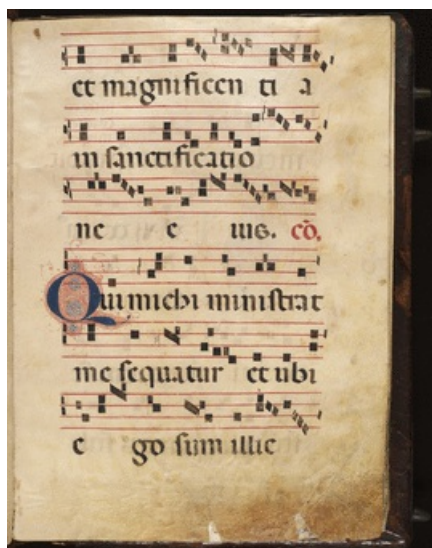 et magnificen ti a
in sanctificatio
ne e ius. cō.
Qui michi ministrat
me sequatur et ubi
e go sum illic